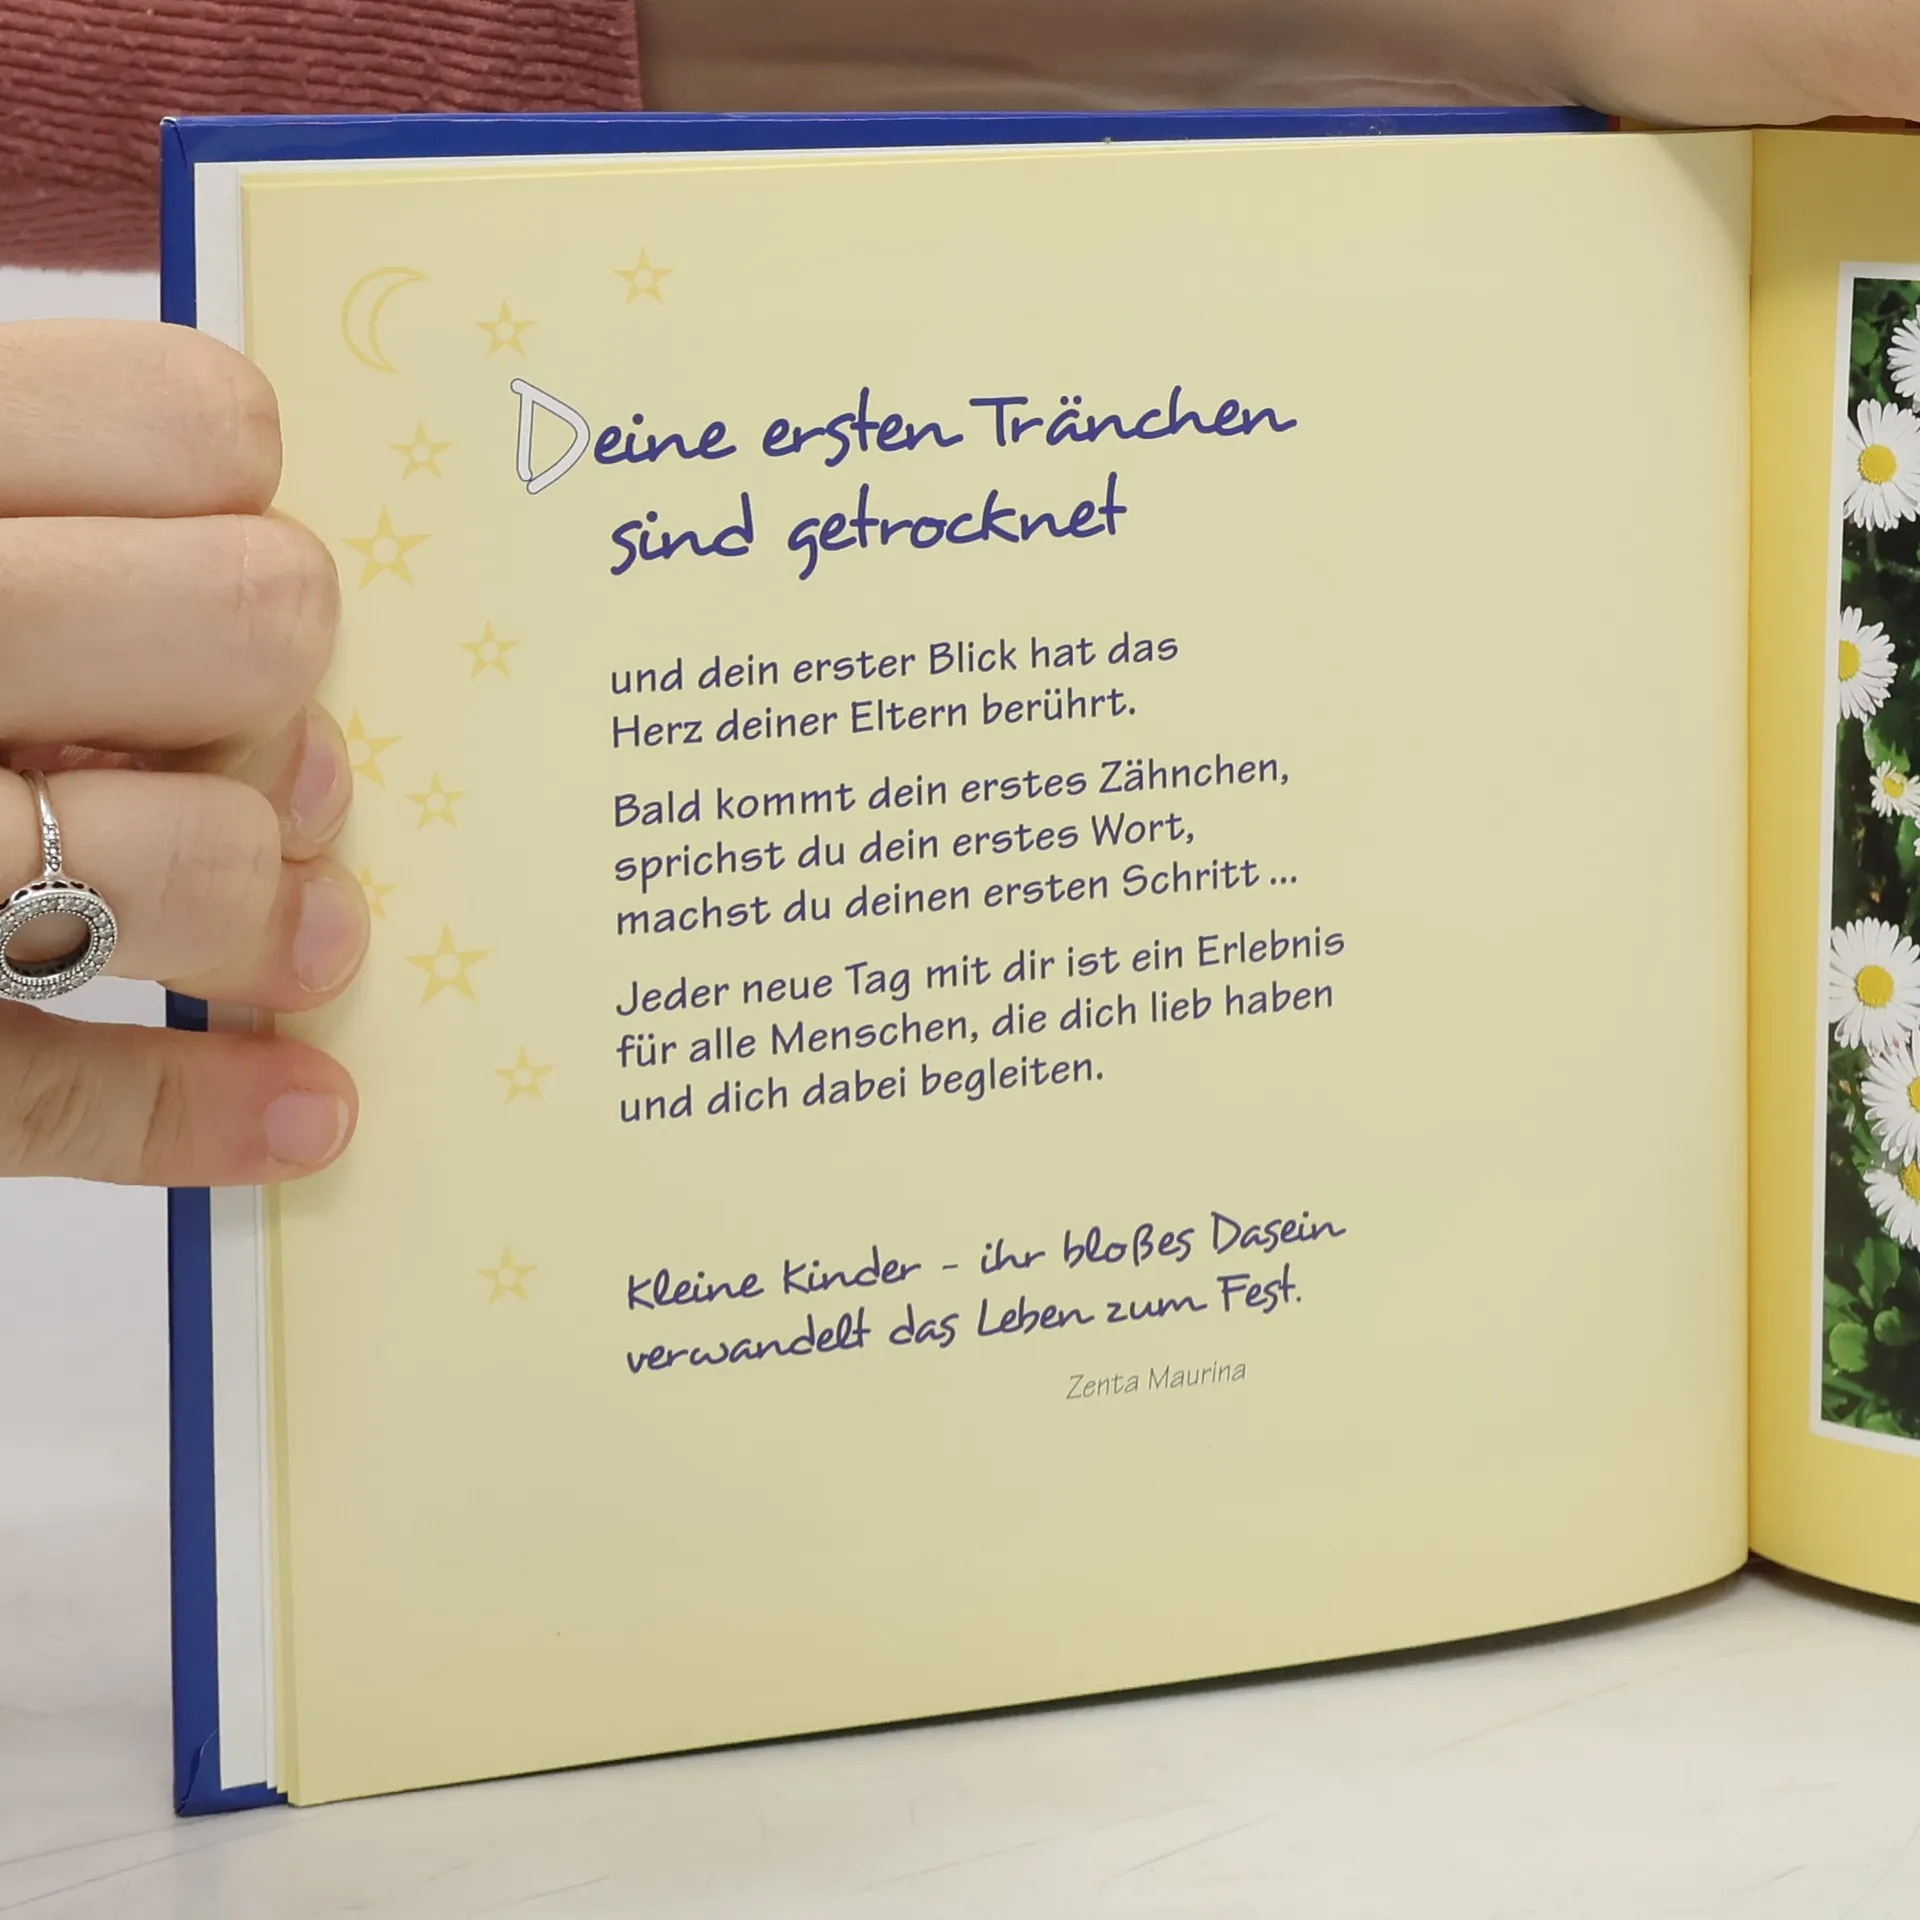 Deine ersten Tränchen
sind getrocknet
und dein erster Blick hat das
Herz deiner Eltern berührt.
Bald kommt dein erstes Zähnchen,
sprichst du dein erstes Wort,
machst du deinen ersten Schritt ...
Jeder neue Tag mit dir ist ein Erlebnis
für alle Menschen, die dich lieb haben
und dich dabei begleiten.
Kleine Kinder - ihr bloßes Dasein
verwandelt das Leben zum Fest.
Zenta Maurina